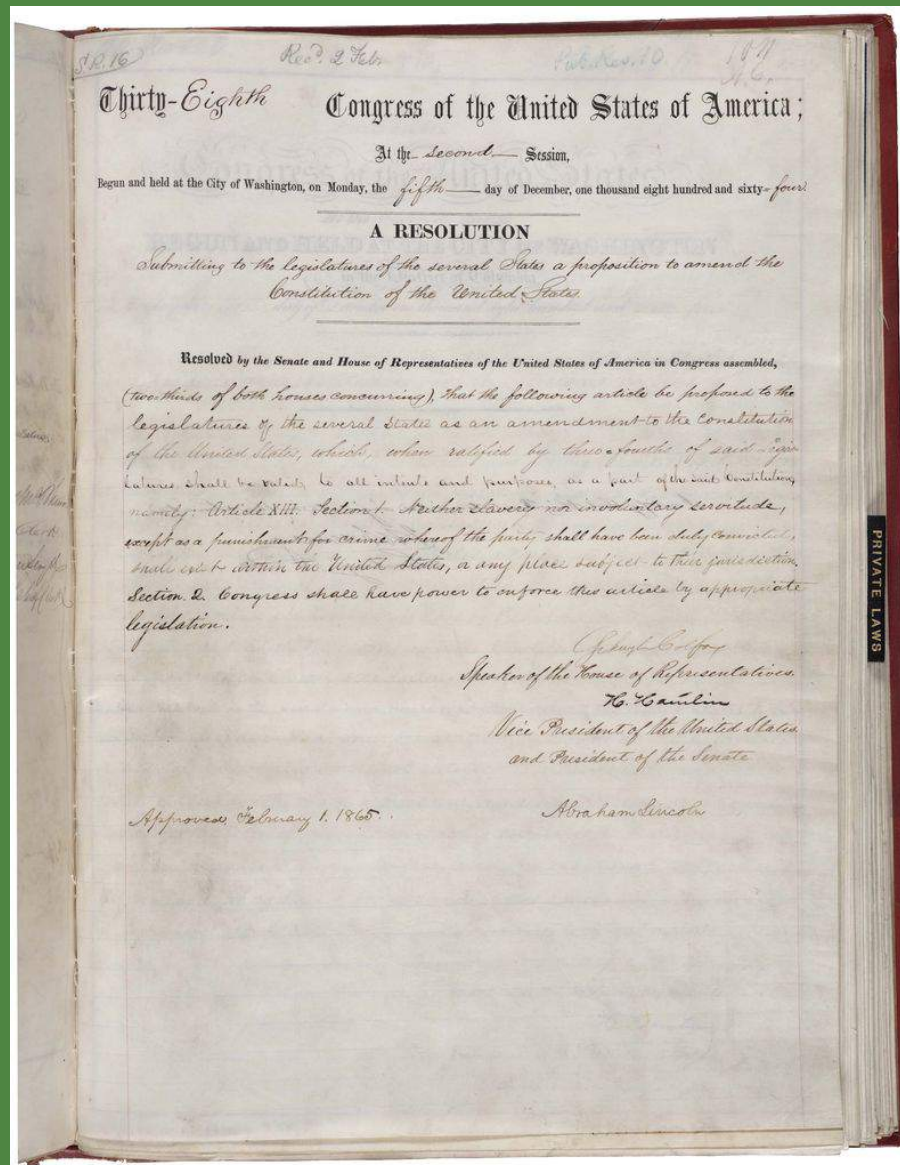 S.R. 16
Rec'd. 2 Feb.
Pub. Res. 10
Thirty-Eighth Congress of the United States of America;
At the second Session,
Begun and held at the City of Washington, on Monday, the fifth day of December, one thousand eight hundred and sixty-four
A RESOLUTION
Submitting to the legislatures of the several States a proposition to amend the
Constitution of the United States.
Resolved by the Senate and House of Representatives of the United States of America in Congress assembled,
(two-thirds of both houses concurring), that the following article be proposed to the
legislatures of the several States as an amendment to the Constitution
of the United States, which, when ratified by three-fourths of said Legis-
latures shall be valid, to all intents and purposes, as a part of the said Constitution,
namely: Article XIII. Section 1. Neither slavery nor involuntary servitude,
except as a punishment for crime whereof the party shall have been duly convicted,
shall exist within the United States, or any place subject to their jurisdiction.
Section. 2. Congress shall have power to enforce this article by appropriate
legislation.
Schuyler Colfax
Speaker of the House of Representatives.
H. Hamlin
Vice President of the United States
and President of the Senate
Approved, February 1. 1865.
Abraham Lincoln
PRIVATE LAWS